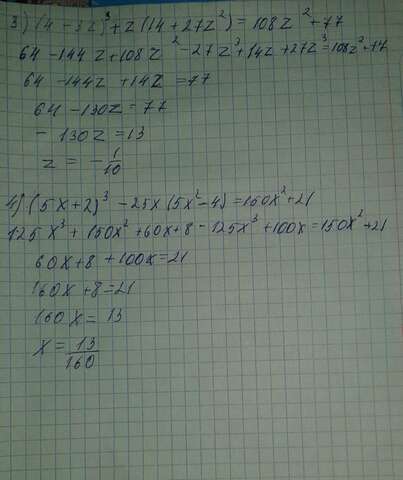 3) (4 - 3z)³ + z(14 + 27z²) = 108z² + 77
64 - 144z + 108z² - 27z³ + 14z + 27z³ = 108z² + 77
64 - 144z + 14z = 77
64 - 130z = 77
- 130z = 13
z = - 1/10
4) (5x + 2)³ - 25x(5x² - 4) = 150x² + 21
125x³ + 150x² + 60x + 8 - 125x³ + 100x = 150x² + 21
60x + 8 + 100x = 21
160x + 8 = 21
160x = 13
x = 13/160